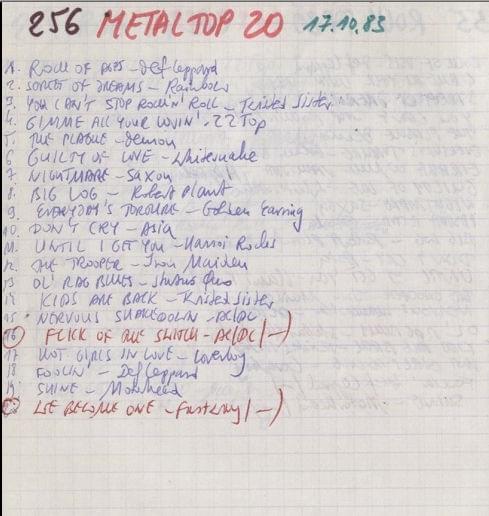 256 METAL TOP 20 17.10.83
1. ROCK OF AGES - Def Leppard
2. SONGS OF DREAMS - Rainbow
3. YOU CAN'T STOP ROCKIN' ROLL - Twisted Sister
4. GIMME ALL YOUR LOVIN' - ZZ Top
5. THE PLAGUE - Demon
6 GUILTY OF LOVE - Whitesnake
7. NIGHTMARE - Saxon
8. BIG LOG - Robert Plant
9. EVERYDAY'S TORTURE - Golden Earring
10. DON'T CRY - Asia
11. UNTIL I GET YOU - Hanoi Rocks
12. THE TROOPER - Iron Maiden
13 OL' RAG BLUES - Status Quo
14 KIDS ARE BACK - Twisted Sister
15 NERVOUS SHAKEDOWN - AC/DC
16 FLICK OF THE SWITCH - AC/DC (-)
17 HOT GIRLS IN LOVE - Loverboy
18 FOOLIN' - Def Leppard
19. SHINE - Motorhead
20 WE BECOME ONE - Fastway (-)